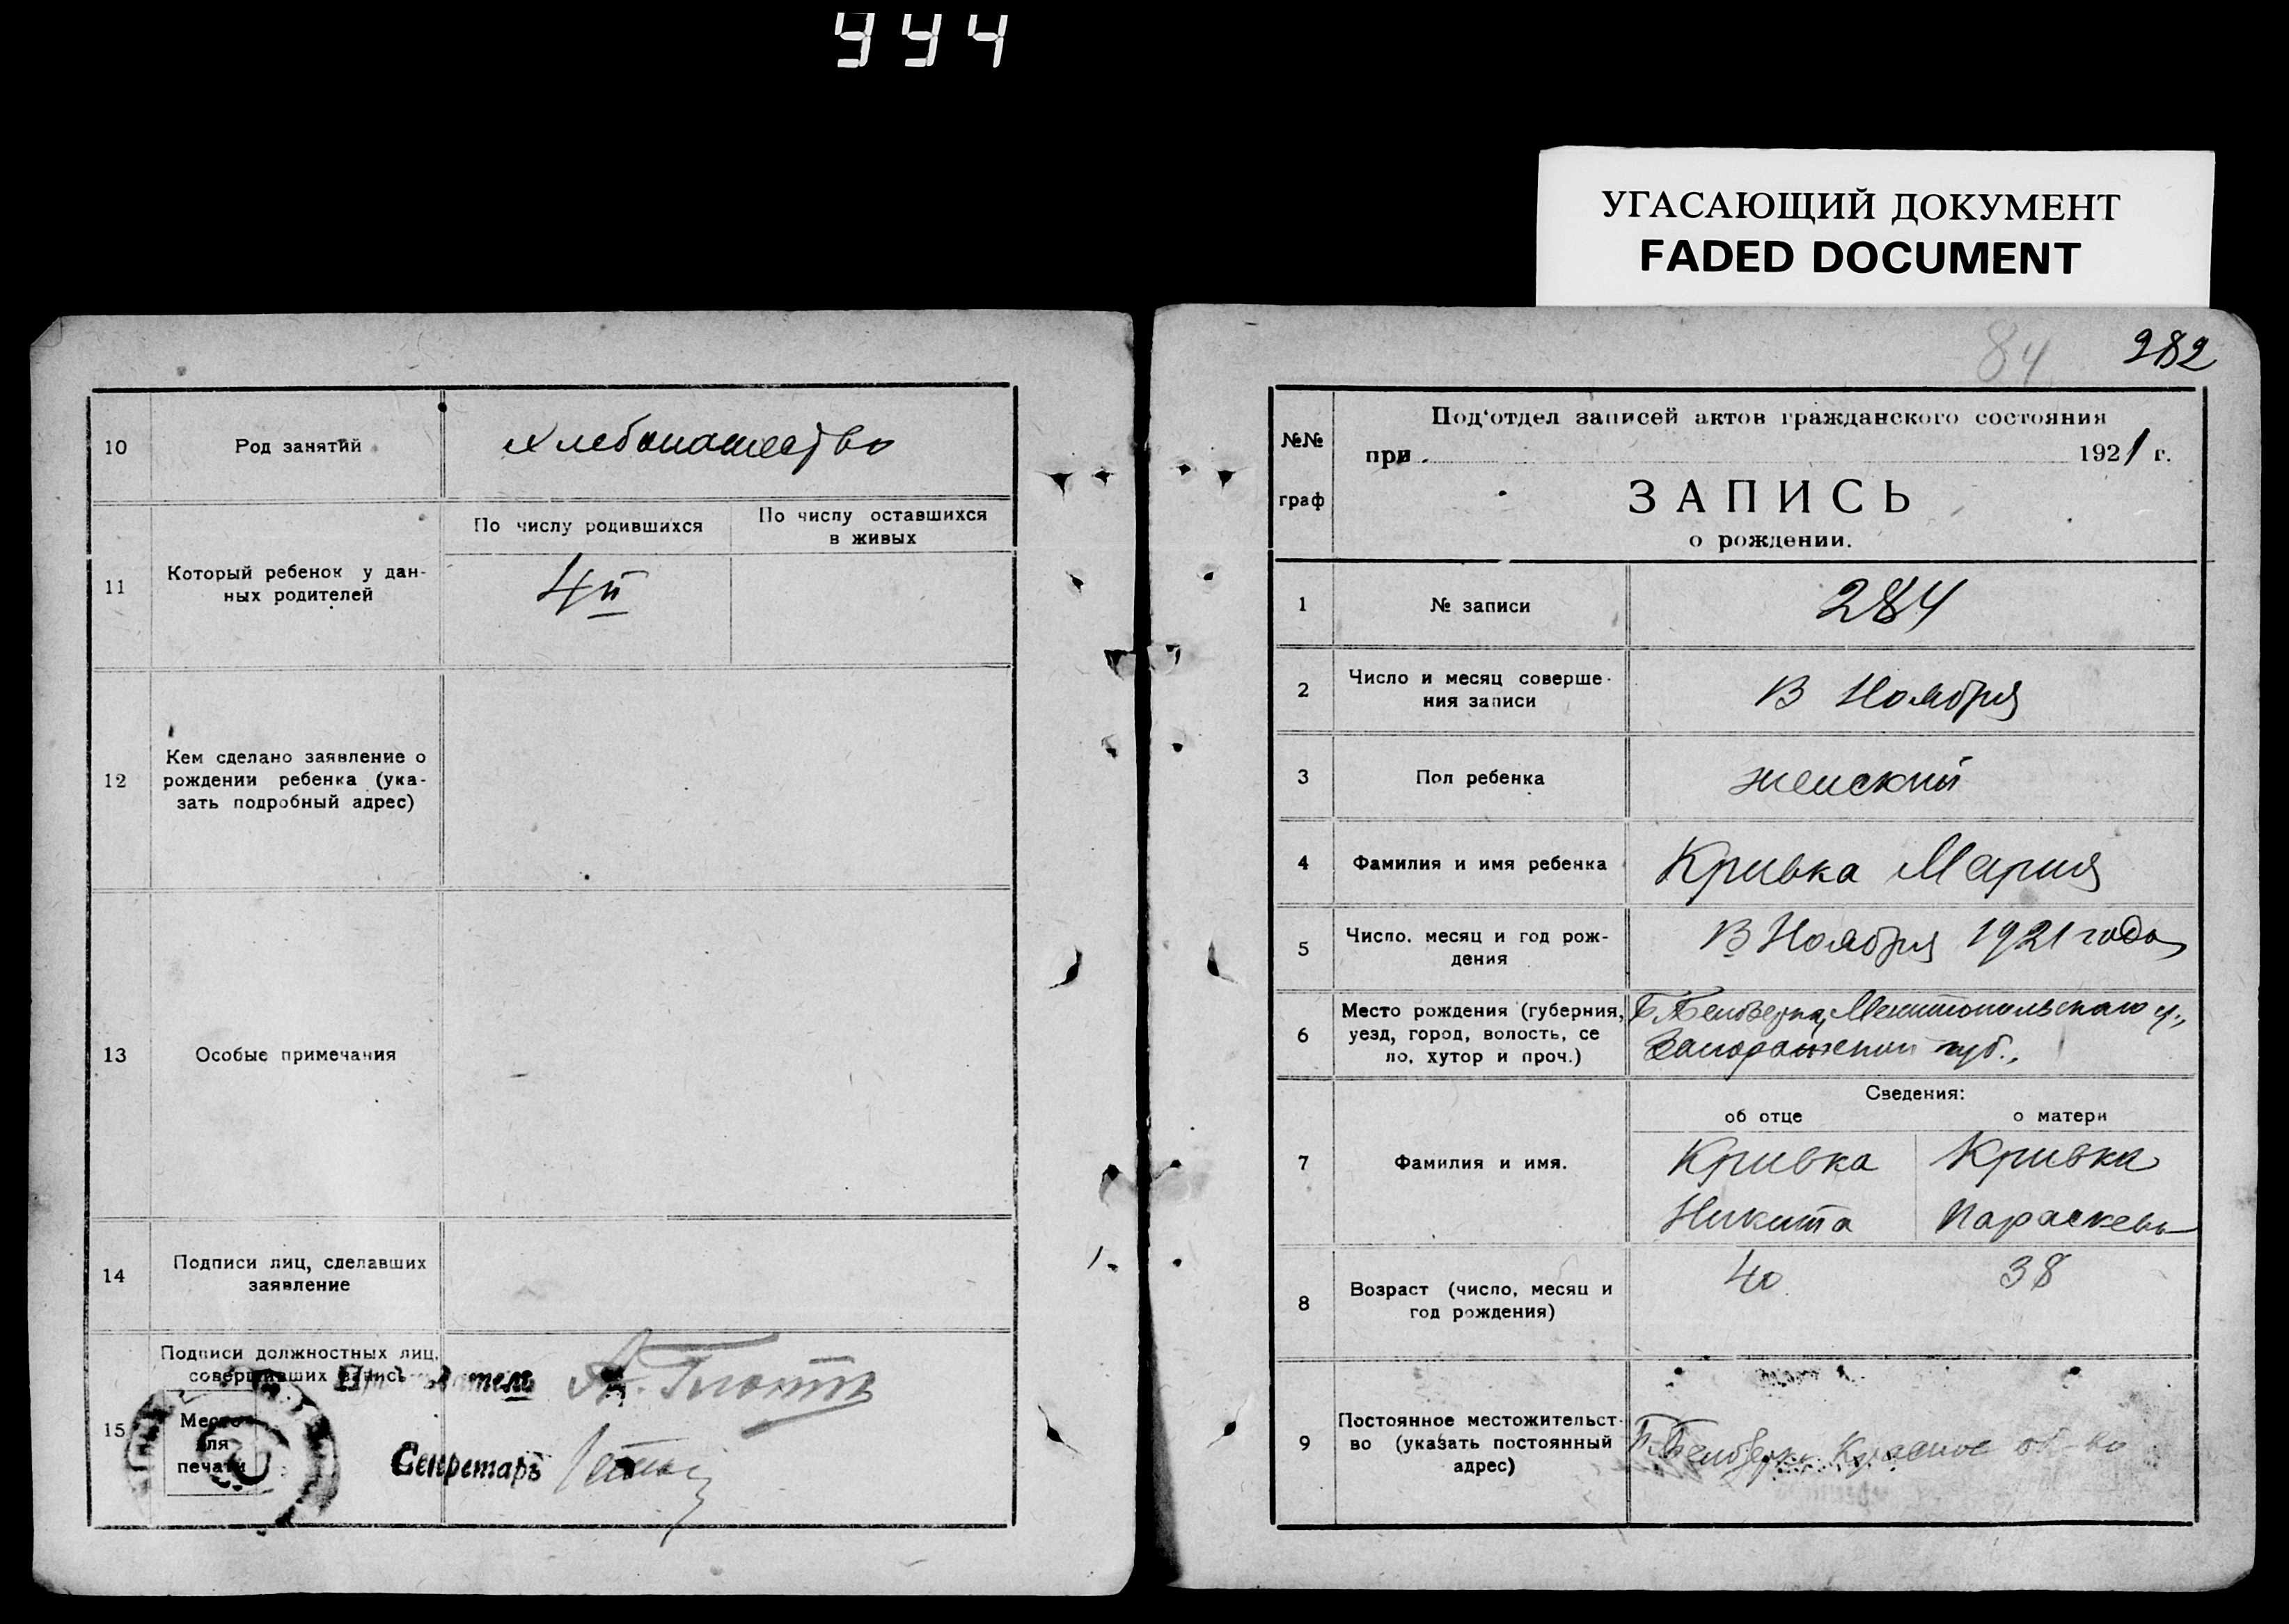 994
УГАСАЮЩИЙ ДОКУМЕНТ
FADED DOCUMENT
10
Род занятий
Хлебопашество
11
Который ребенок у дан-
ных родителей
По числу родившихся
По числу оставшихся
в живых
4й
12
Кем сделано заявление о
рождении ребенка (ука-
зать подробный адрес)
13
Особые примечания
14
Подписи лиц, сделавших
заявление
15
Подписи должностных лиц,
совершивших запись
Место
для
печати
Секретарь
84 282
№№
граф
Под'отдел записей актов гражданского состояния
при 1921 г.
ЗАПИСЬ
о рождении.
1
№ записи
284
2
Число и месяц соверше-
ния записи
Ноября
3
Пол ребенка
женский
4
Фамилия и имя ребенка
Кривка Мария
5
Число, месяц и год рож-
дения
Ноября 1921 года
6
Место рождения (губерния,
уезд, город, волость, се
ло, хутор и проч.)
Мелитопольскаго у.,
губ.,
Сведения:
об отце
о матери
7
Фамилия и имя.
Кривка
Никита
Кривка
Параскева
8
Возраст (число, месяц и
год рождения)
40
38
9
Постоянное местожительст-
во (указать постоянный
адрес)